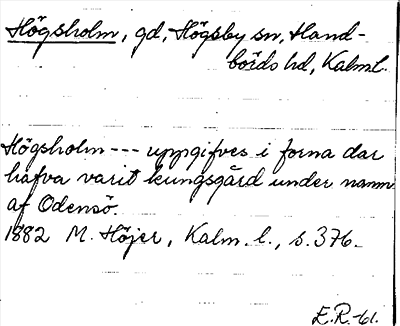 Högsholm, gd, Högsby sn, Hand-
börds hd, Kalm.l.
Högsholm --- uppgifves i forna dar
hafva varit kungsgård under namn
af Odensö.
1882 M. Höjer, Kalm. l., s. 376.
E.R.-61.